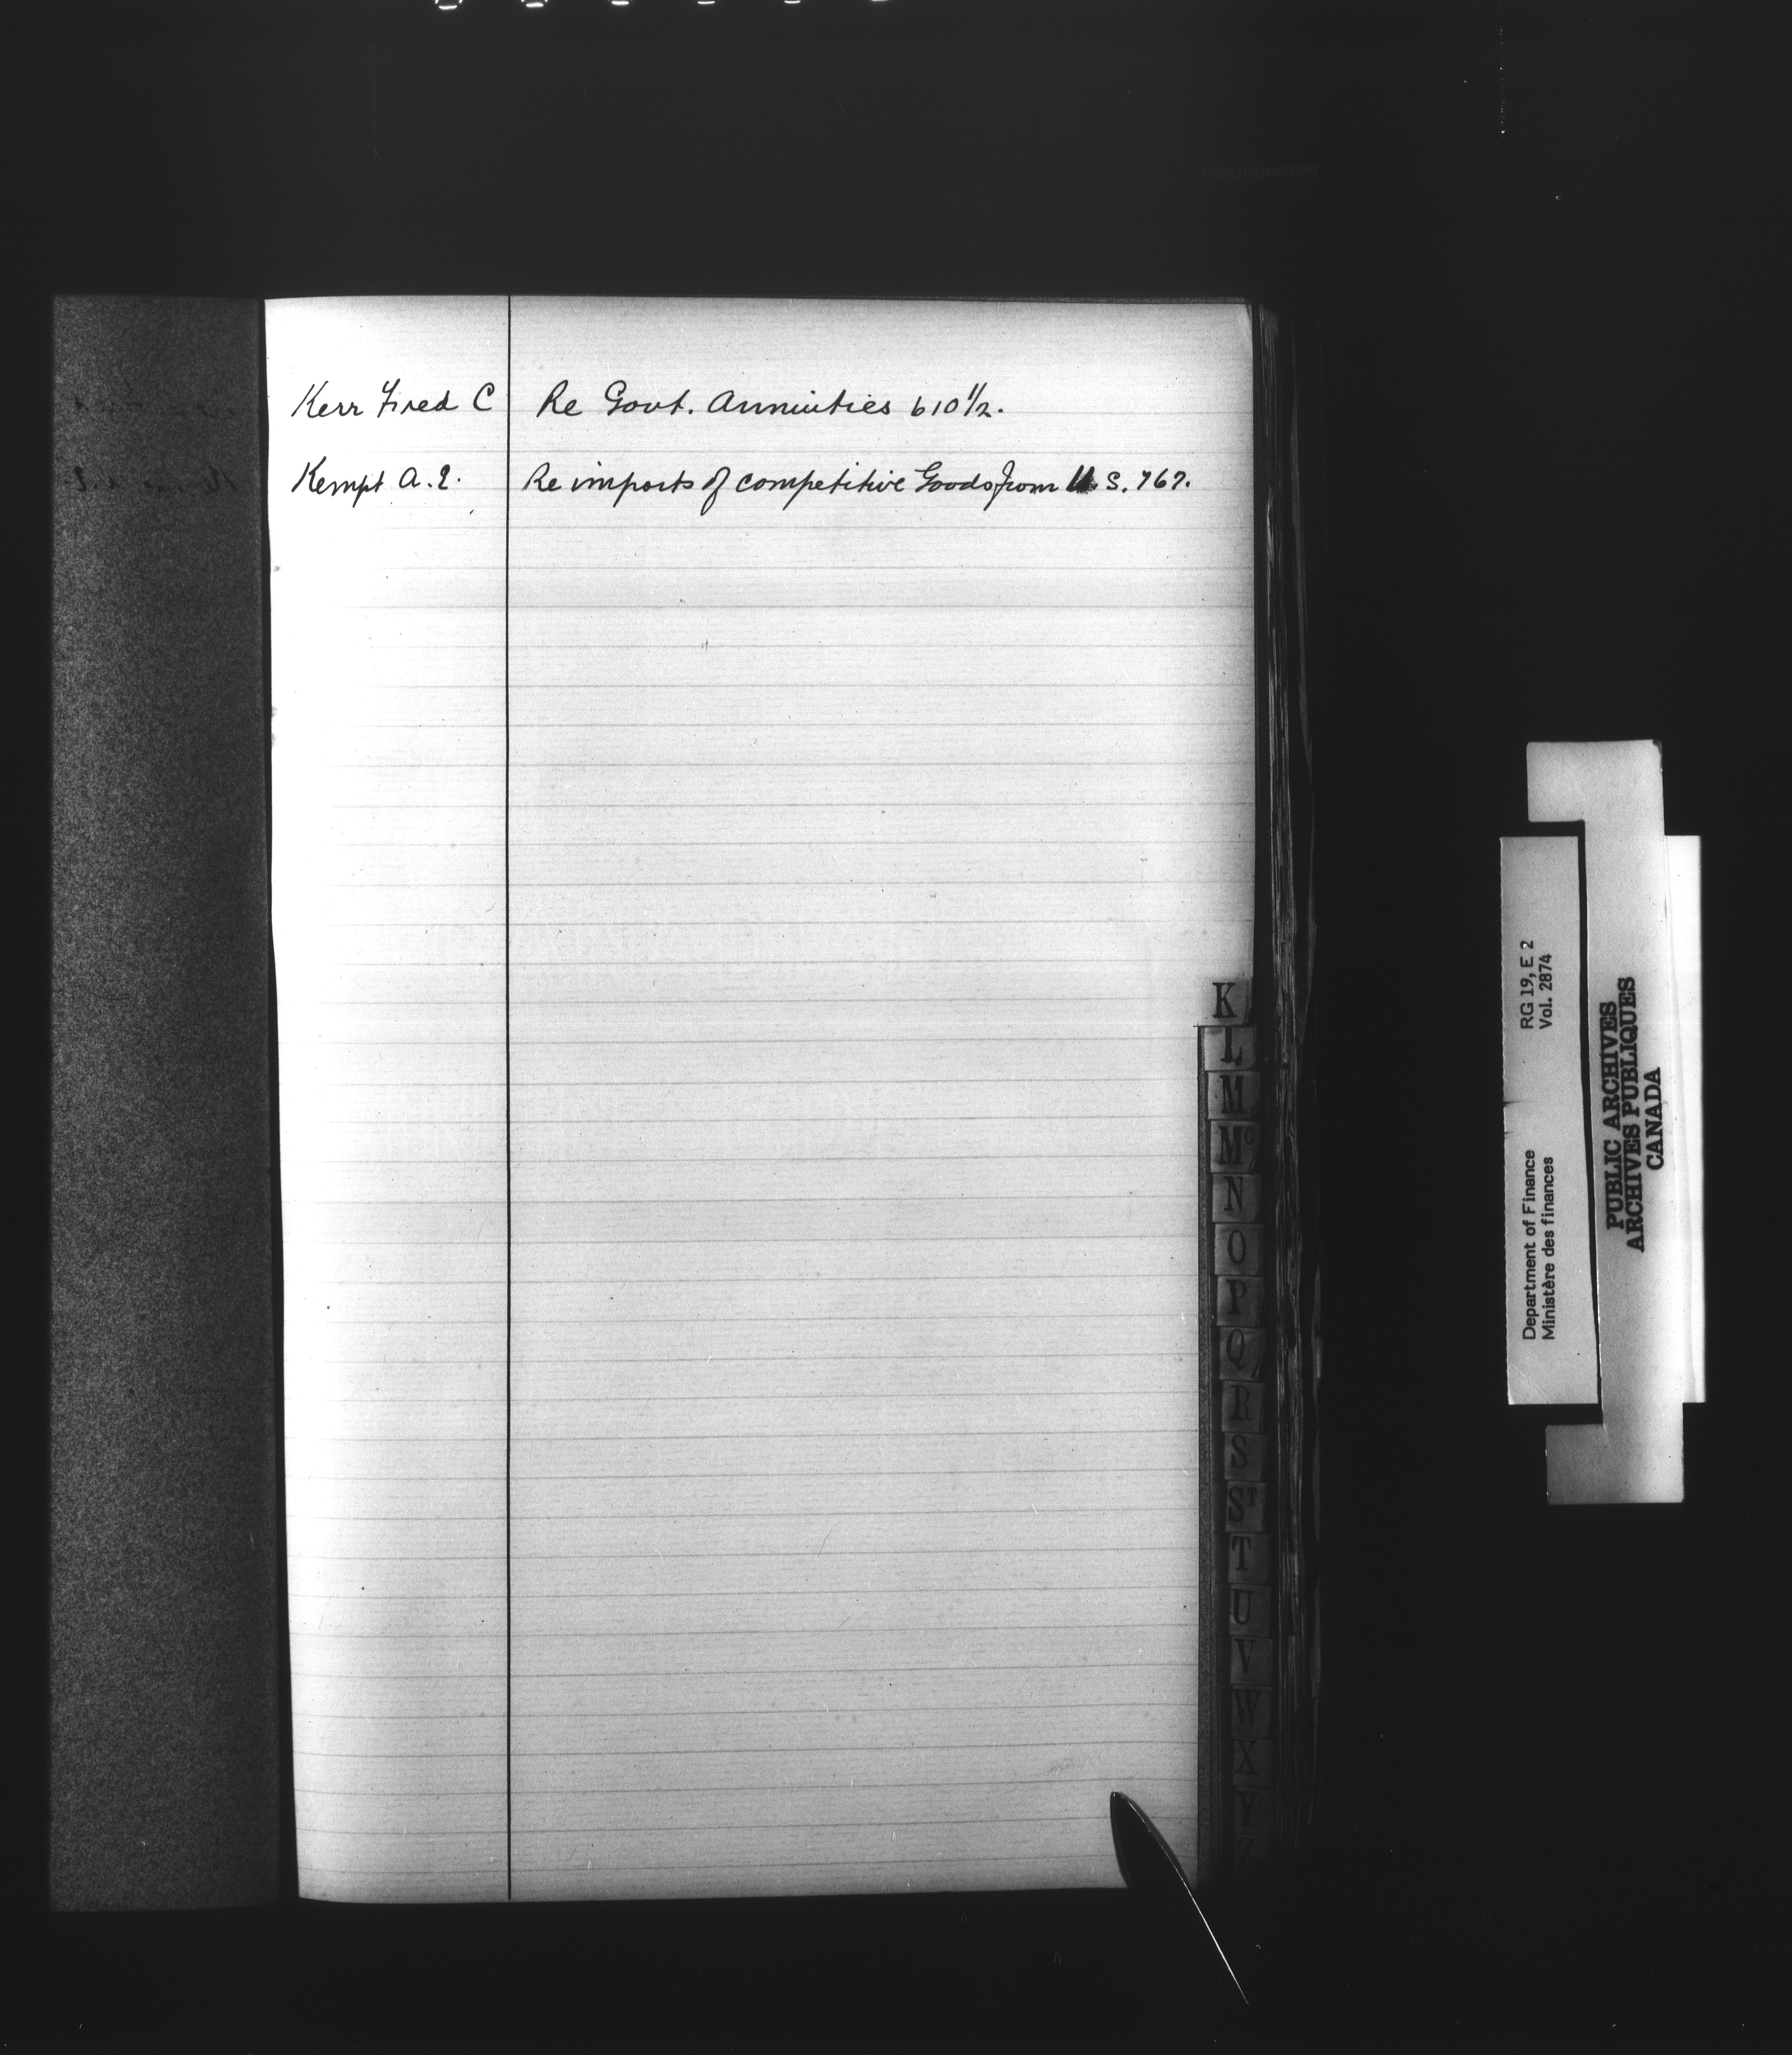 Kerr Fred C Re Govt. Annuities 610 1/2.
Kempt A.E. Re imports of competitive Goods from U.S. 767.
K
L
M
Mc
N
O
P
Q
R
S
ST
T
U
V
W
X
Y
Z
Department of Finance RG 19, E 2
Ministère des finances Vol. 2874
PUBLIC ARCHIVES
ARCHIVES PUBLIQUES
CANADA